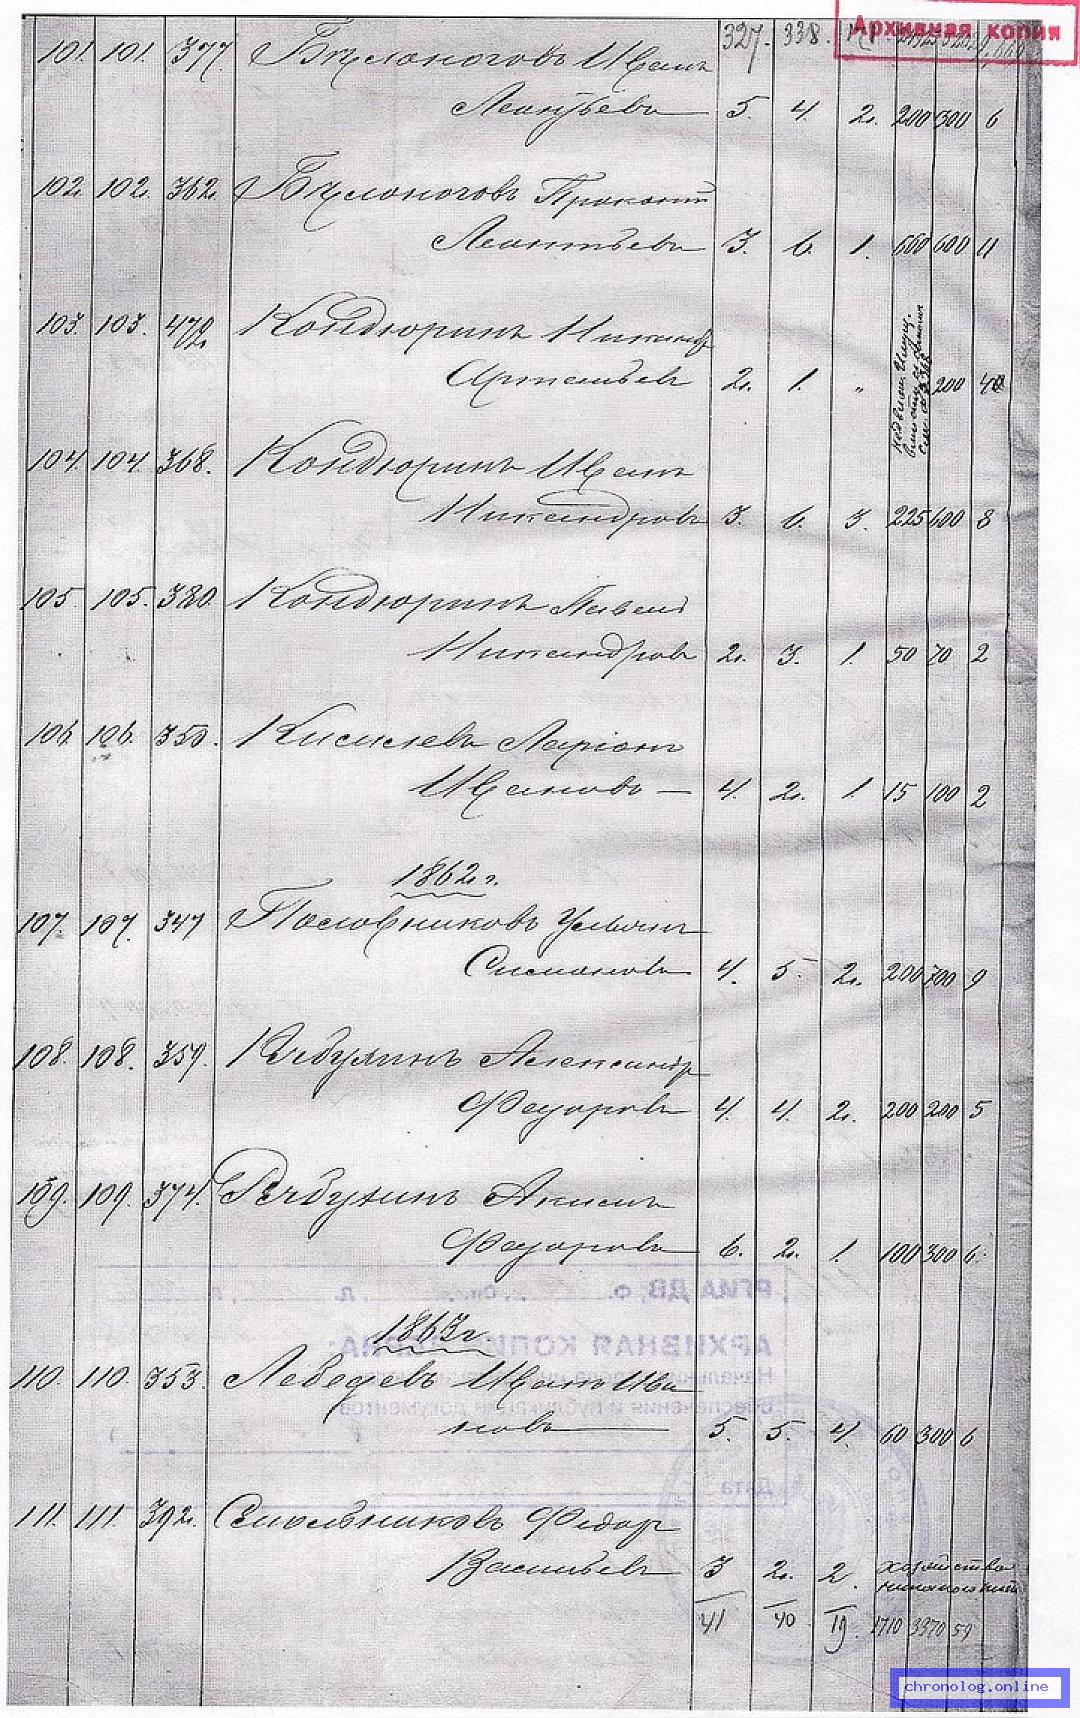 Архивная копия
327. 338.
101. 101. 377. Бѣлоноговъ Иванъ
Леонтьевъ 5. 4. 2. 200 300 6
102. 102. 362. Бѣлоноговъ Прокопій
Леонтьевъ 3. 6. 1. 600 11
103. 103. Кондюринъ Никандр
Артемьевъ 2. 1. „ 200
104. 104. 368. Кондюринъ Иванъ
Никандровъ 3. 6. 3. 225 600 8
105. 105. 380. Кондюринъ Павелъ
Никандровъ 2. 3. 1. 50 70 2
106. 106. 350. Киселевъ Ларіонъ
Ивановъ — 4. 2. 1. 15 100 2
1862 г.
107. 107. 347 Пословниковъ Ульянъ
Симоновъ 4. 5. 2. 200 700 9
108. 108. 359. Рябухинъ Александр
Федоровъ 4. 4. 2. 200 200 5
109. 109. 374. Рябухинъ Акимъ
Федоровъ 6. 2. 1. 100 300 6.
РГИА ДВ, ф. , оп. , д. , л.
АРХИВНАЯ КОПИЯ
1863 г.
110. 110. 353. Лебедевъ Иванъ Ива
новъ 5. 5. 4. 60 300 6
Дата
111. 111. 392. Смольниковъ Федор
Васильевъ 3 2. 2. хозяйства
41 40 19. 1710 3370 59
chronolog.online